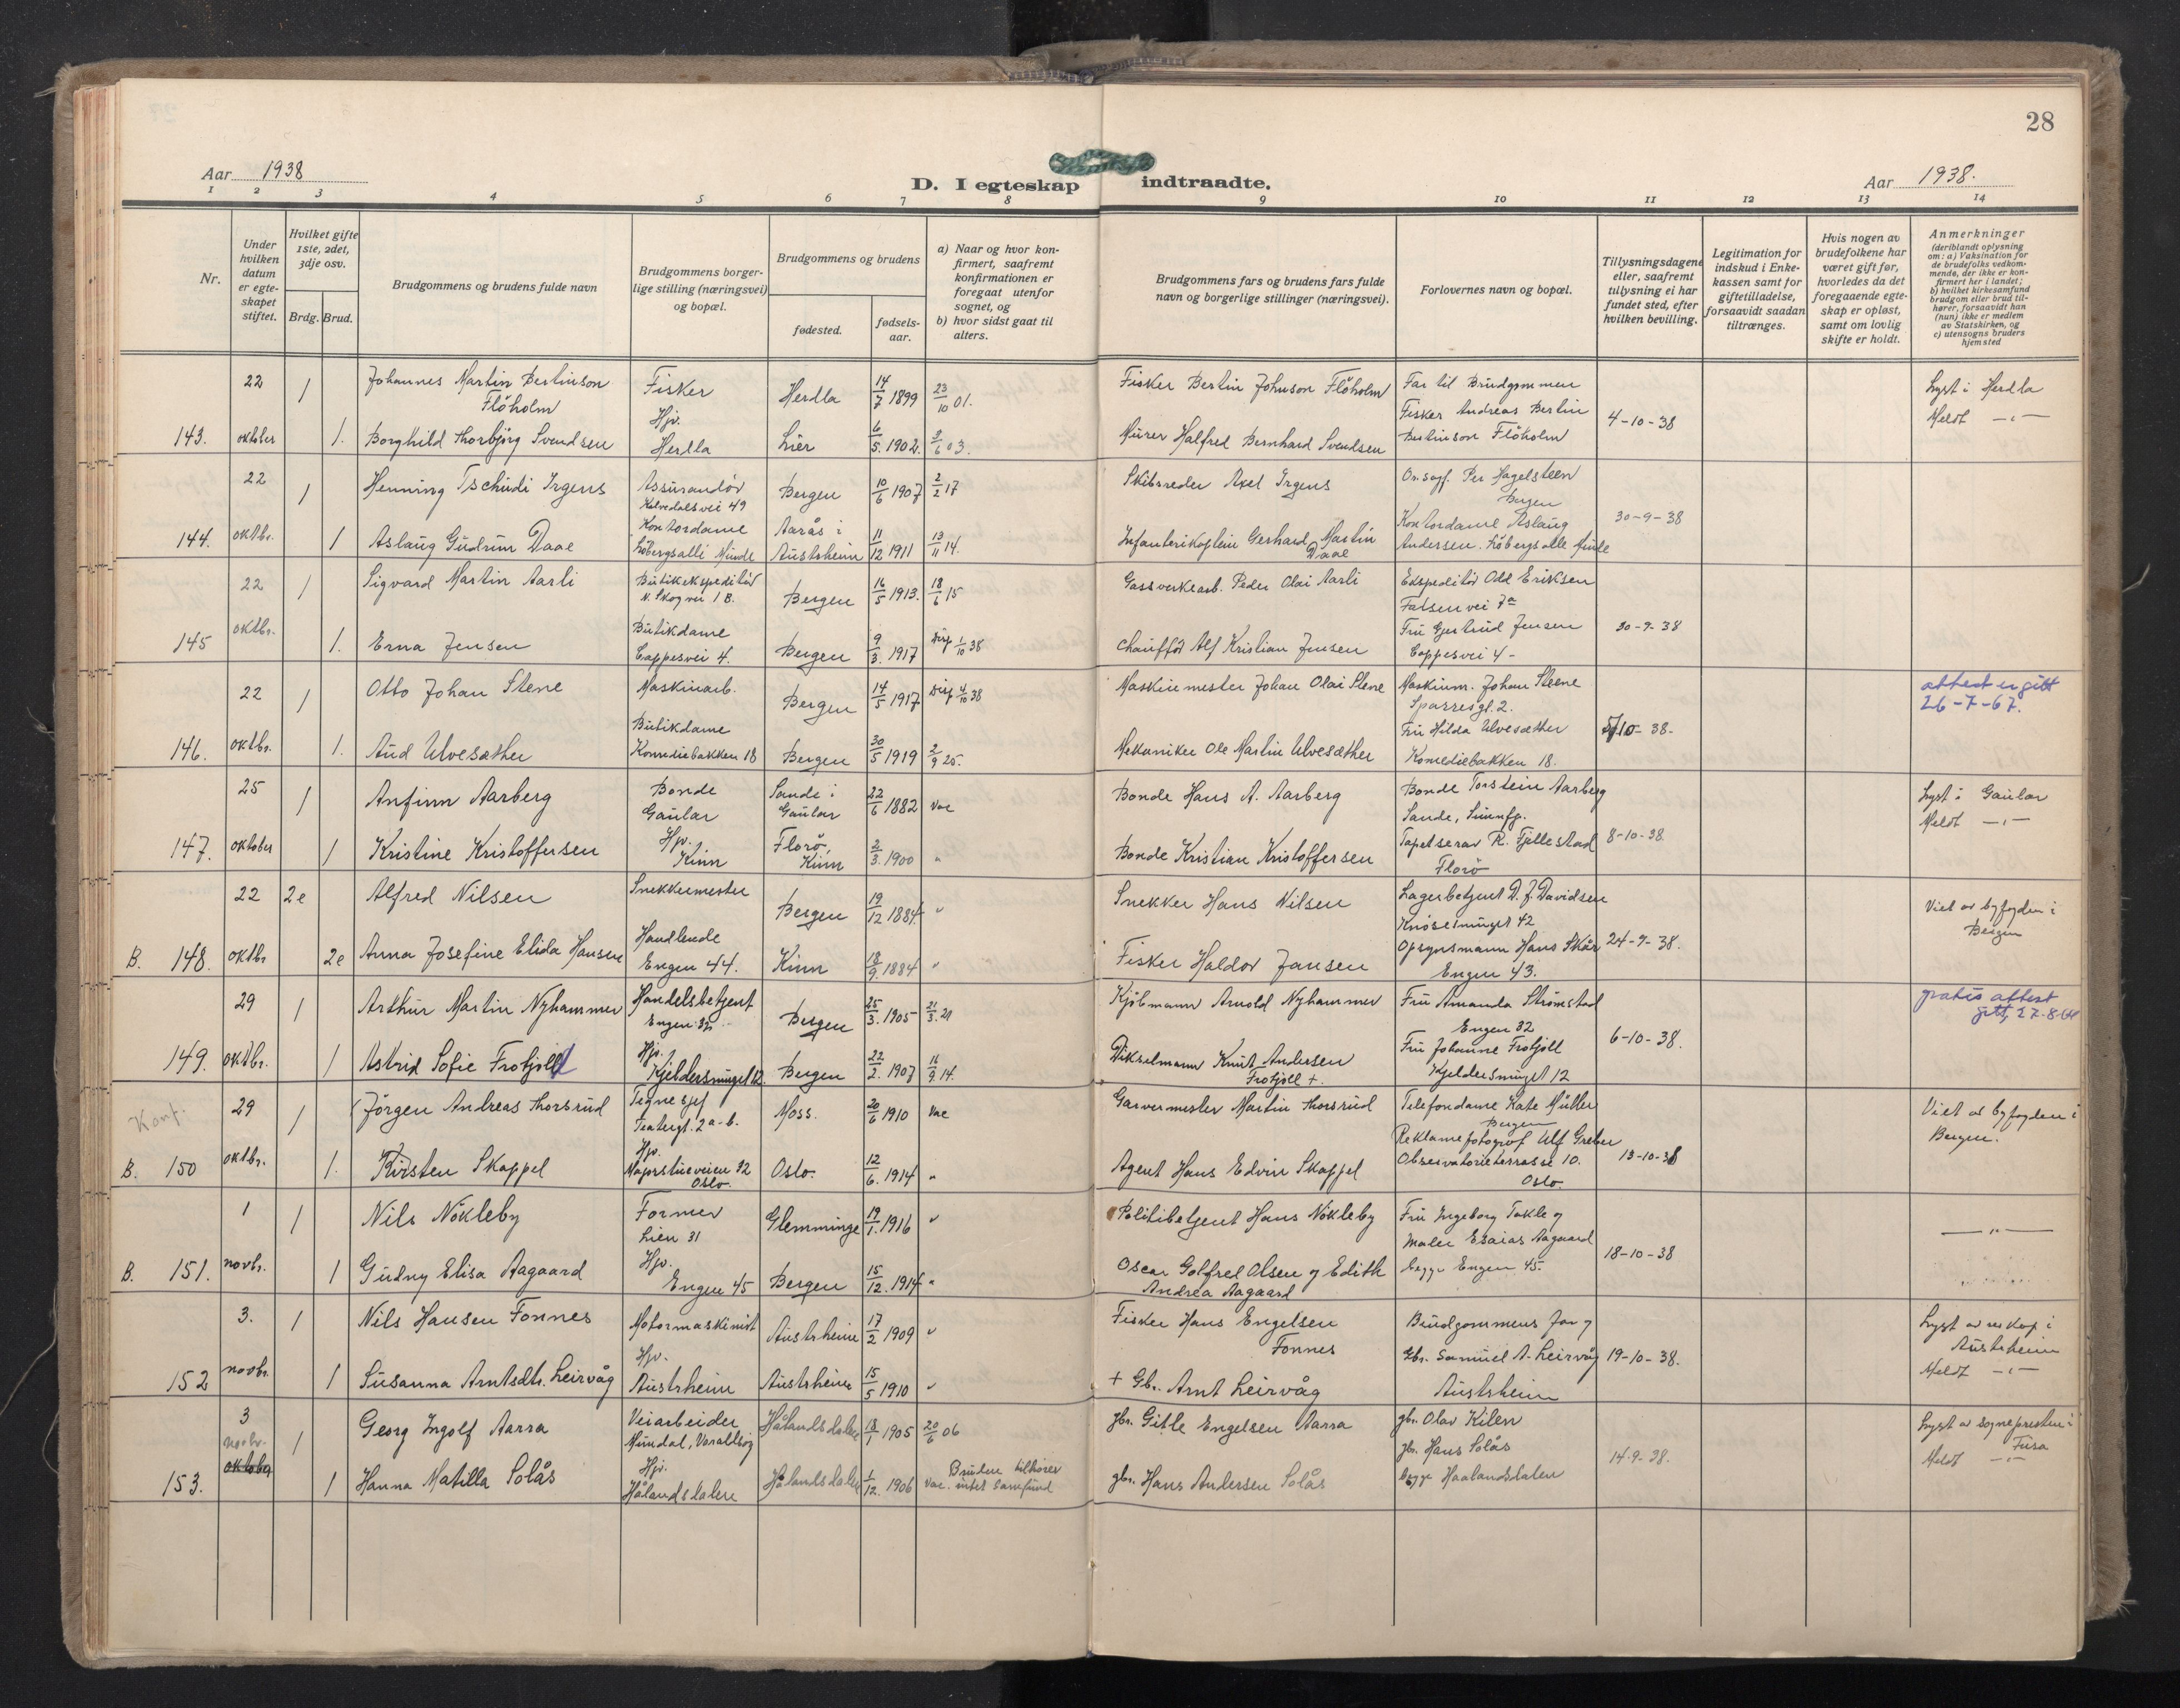 28
Aar 1938
D. I egteskap indtraadte.
Aar 1938.
1 2 3 4 5 6 7 8 9 10 11 12 13 14
Nr.
Under hvilken datum er egte-skapet stiftet.
Hvilket gifte 1ste, 2det, 3dje osv.
Brdg. Brud.
Brudgommens og brudens fulde navn
Brudgommens borger-lige stilling (næringsvei) og bopæl.
Brudgommens og brudens
fødested.
fødsels-aar.
a) Naar og hvor kon-firmert, saafremt konfirmationen er foregaat utenfor sognet, og
b) hvor sidst gaat til alters.
Brudgommens fars og brudens fars fulde navn og borgerlige stillinger (næringsvei).
Forlovernes navn og bopæl.
Tillysningsdagene eller, saafremt tillysning ei har fundet sted, efter hvilken bevilling.
Legitimation for indskud i Enke-kassen samt for giftetilladelse, forsaavidt saadan tiltrænges.
Hvis nogen av brudefolkene har været gift før, hvorledes da det foregaaende egte-skap er opløst, samt om lovlig skifte er holdt.
Anmerkninger
(deriblandt oplysning om: a) Vaksination for de brudefolks vedkom-mende, der ikke er kon-firmert her i landet; b) hvilket kirkesamfund brudgom eller brud til-hører, forsaavidt han (hun) ikke er medlem av Statskirken, og c) utensogns bruders hjemsted
22 1 Johannes Martin Bertinson Fløholm Fisker Herdla 14/7 1899 23/10 01. Fisker Bertin Johnson Fløholm Far til Brudgommen Lyst i Herdla
143. oktober 1. Borghild Thorbjörg Svendsen Hjv. Herdla Lier 6/5. 1902. 2/6 03. Murer Halfred Bernhard Svendsen Fisker Andreas Bertin Bertinson Flöholm 4-10-38 Meldt -"-
22 1 Henning Tschudi Irgens Assurandör Kalvedalsvei 49 Bergen 10/6 1907 2/2 17 Skibsreder Axel Irgens Or.sagf. Per Hagelsteen Bergen
144. oktbr. 1 Aslaug Gudrun Daae Kontordame Löbergsalli Minde Aarås i Austrheim 11/12 1911 13/11 14. Infanterikaptein Gerhard Martin Daae Kontordame Aslaug Andersen. Löbergsalle Minde 30-9-38
22 1 Sigvard Martin Aarli Butikekspeditör N. Skogvei 1 B. Bergen 16/5 1913. 18/6 15 Gassverkearb. Peder Olai Aarli Ekspeditör Odd Eriksen Falsenvei 7a
145 oktbr. 1. Erna Jensen Butikdame Cappesvei 4. Bergen 9/3. 1917 Disp 1/10 38 Chauffør Alf Kristian Jensen Fru Gjertrud Jensen Cappesvei 4- 30-9-38
22 1 Otto Johan Stene Maskinarb. Bergen 14/5 1917 Disp 4/10 38 Maskinmester Johan Olai Stene Maskinm. Johan Steene Sparresgt. 2. attest er gitt 26-7-67.
146. oktbr. 1. Aud Ulvesæther Butikdame Komediebakken 18 Bergen 30/5 1919 2/9 25. Mekaniker Ole Martin Ulvesæther Fru Hilda Ulvesæther Komediebakken 18. 5/10-38.
25 1 Anfinn Aarberg Bonde Gaular Sande i Gaular 22/6 1882 Vac Bonde Hans A. Aarberg Bonde Torstein Aarberg Sande, Sunnfj. Lyst i Gaular
147. oktober 1 Kristine Kristoffersen Hjv. Kinn Florö, Kinn 2/3. 1900 " Bonde Kristian Kristoffersen Tapetserar R. Fjellestad Florö 8-10-38. Meldt -"-
22 2e Alfred Nilsen Snekkermester Bergen 19/12 1884 " Snekker Hans Nilsen Lagerbetjent D. J. Davidsen Knösesmuget 42 Viet av byfogden i Bergen
B. 148. oktbr 2e Anna Josefine Elida Hansen Handlende Engen 44. Kinn 18/9. 1884 " Fisker Haldor Jansen Opsynsmann Hans Skår Engen 43. 24-9-38.
29 1 Arthur Martin Nyhammer Handelsbetjent Engen 32 Bergen 25/3. 1905 21/3. 21 Kjöbmann Arnold Nyhammer Fru Amanda Strömstad Engen 32 gratis attest gitt, 27-8-64
149. oktbr. 1 Astrid Sofie Frotjold Hjv. Kjeldersmuget 12. Bergen 22/2. 1907 16/9. 14. Dikselmann Knut Andersen Frotjoll +. Fru Johanne Frotjoll Kjeldersmuget 12 6-10-38.
Konf. 29 1 Jörgen Andreas Thorsrud Tegnesjef Teatergt. 2 a-b. Moss. 20/6 1910 Vac Garvermester Martin Thorsrud Telefondame Kate Müller Bergen Viet av byfogden i Bergen.
B. 150 oktbr. 1. Kirsten Skappel Hjv. Majorstueveien 32 Oslo. Oslo. 12/6. 1914 " Agent Hans Edvin Skappel Reklamefotograf Ulf Greber Observatorieterrasse 10. Oslo. 13-10-38
1 1 Nils Nökleby Former Lien 31 Glemminge 19/1. 1916 " Politibetjent Hans Nökleby Fru Ingeborg Takle og -"-
B. 151. novbr. 1 Gudny Elisa Aagaard Hjv. Engen 45 Bergen 15/12. 1914 " Oscar Golfred Olsen og Edith Andrea Aagaard Maler Esaias Aagaard begge Engen 45. 18-10-38
3. 1 Nils Hansen Fonnes Motormaskinist Austrheim 17/2 1909 " Fisker Hans Engelsen Fonnes Brudgommens far og Lyst av res kap i Austrheim
152 novbr. 1 Susanna Arntsdtr. Leirvåg Hjv. Austrheim Austrheim 15/5 1910 " + Gbr. Arnt Leirvåg Gbr. Samuel A. Leirvåg Austrheim 19-10-38. Meldt -"-
3 novbr. 1 Georg Ingolf Aarra Veiarbeider Mundal, Hålandsdalen 18/1 1905 20/6 06 gbr. Gitle Engelsen Aarra gbr. Olav Kilen Lyst av sognepresten i Fusa
153. oktober 1 Hanna Matilla Solås Hjv. Hålandsdalen Hålandsdalen 1/12. 1906 Vac. Bruden tilhører intet samfund gbr. Hans Andersen Solås gbr. Hans Solås begge Haalandsdalen 14-9-38. Meldt -"-